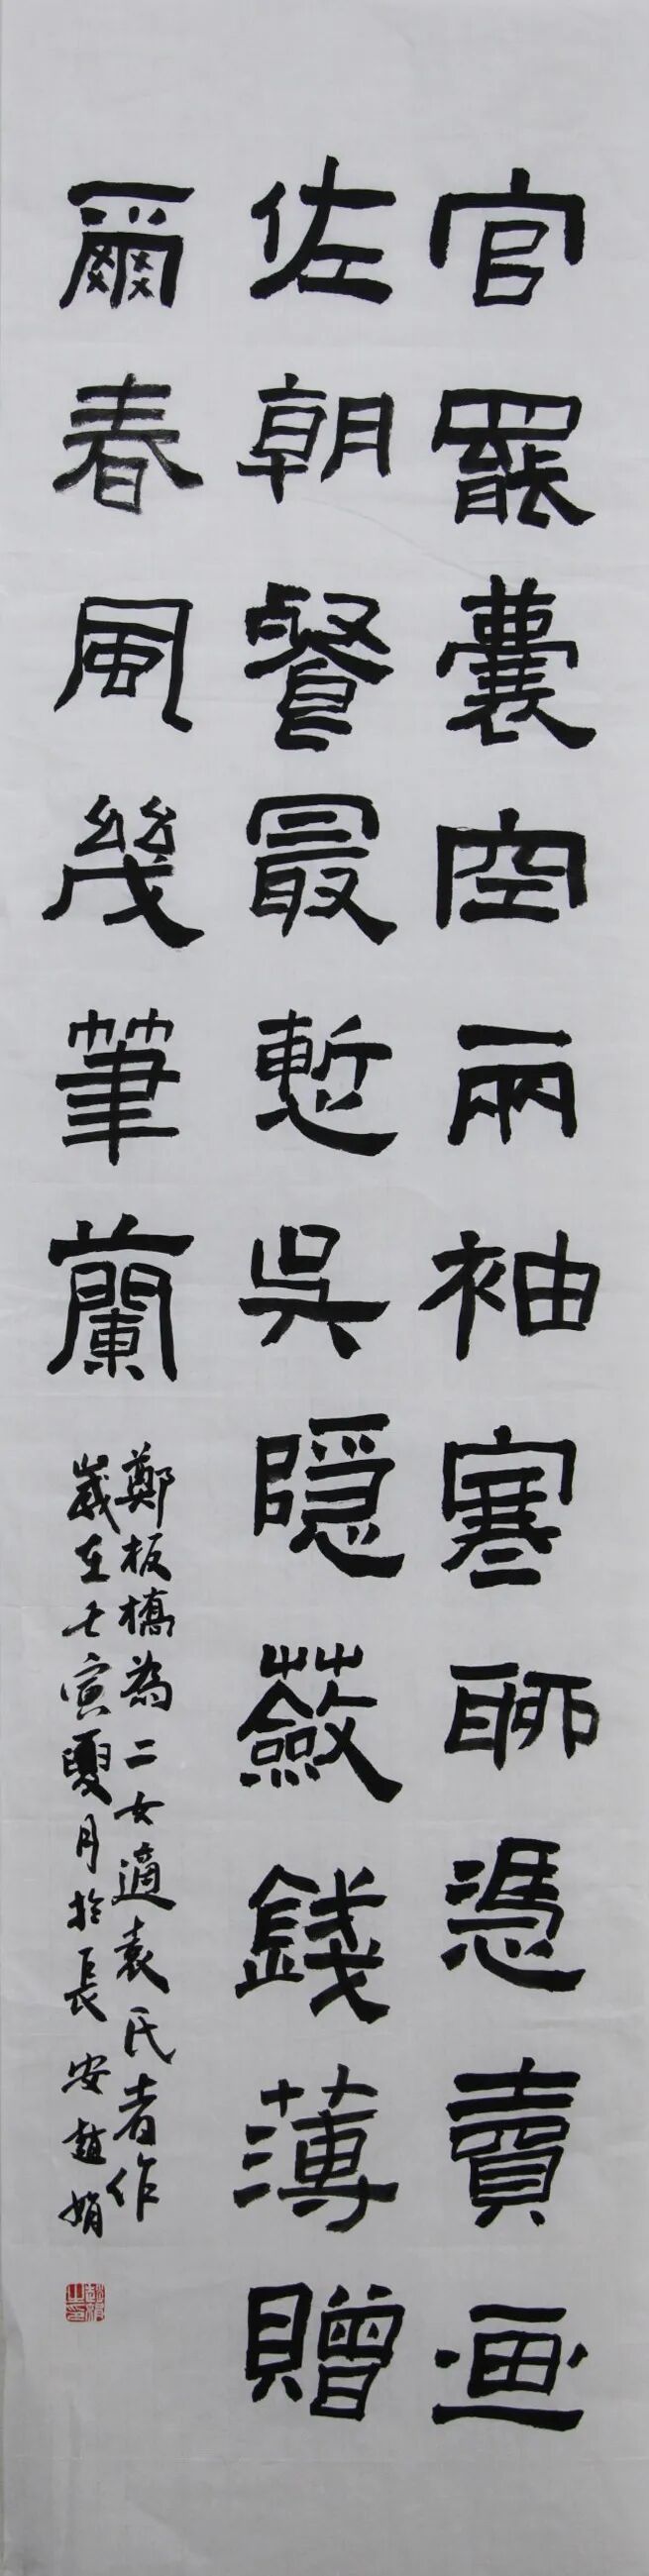 官罷囊空兩袖寒聊憑賣画
佐朝餐最慙吳隱蘞錢薄贈
爾春風幾筆蘭
鄭板橋為二女適袁氏者作
歲在壬寅夏月於長安趙娟